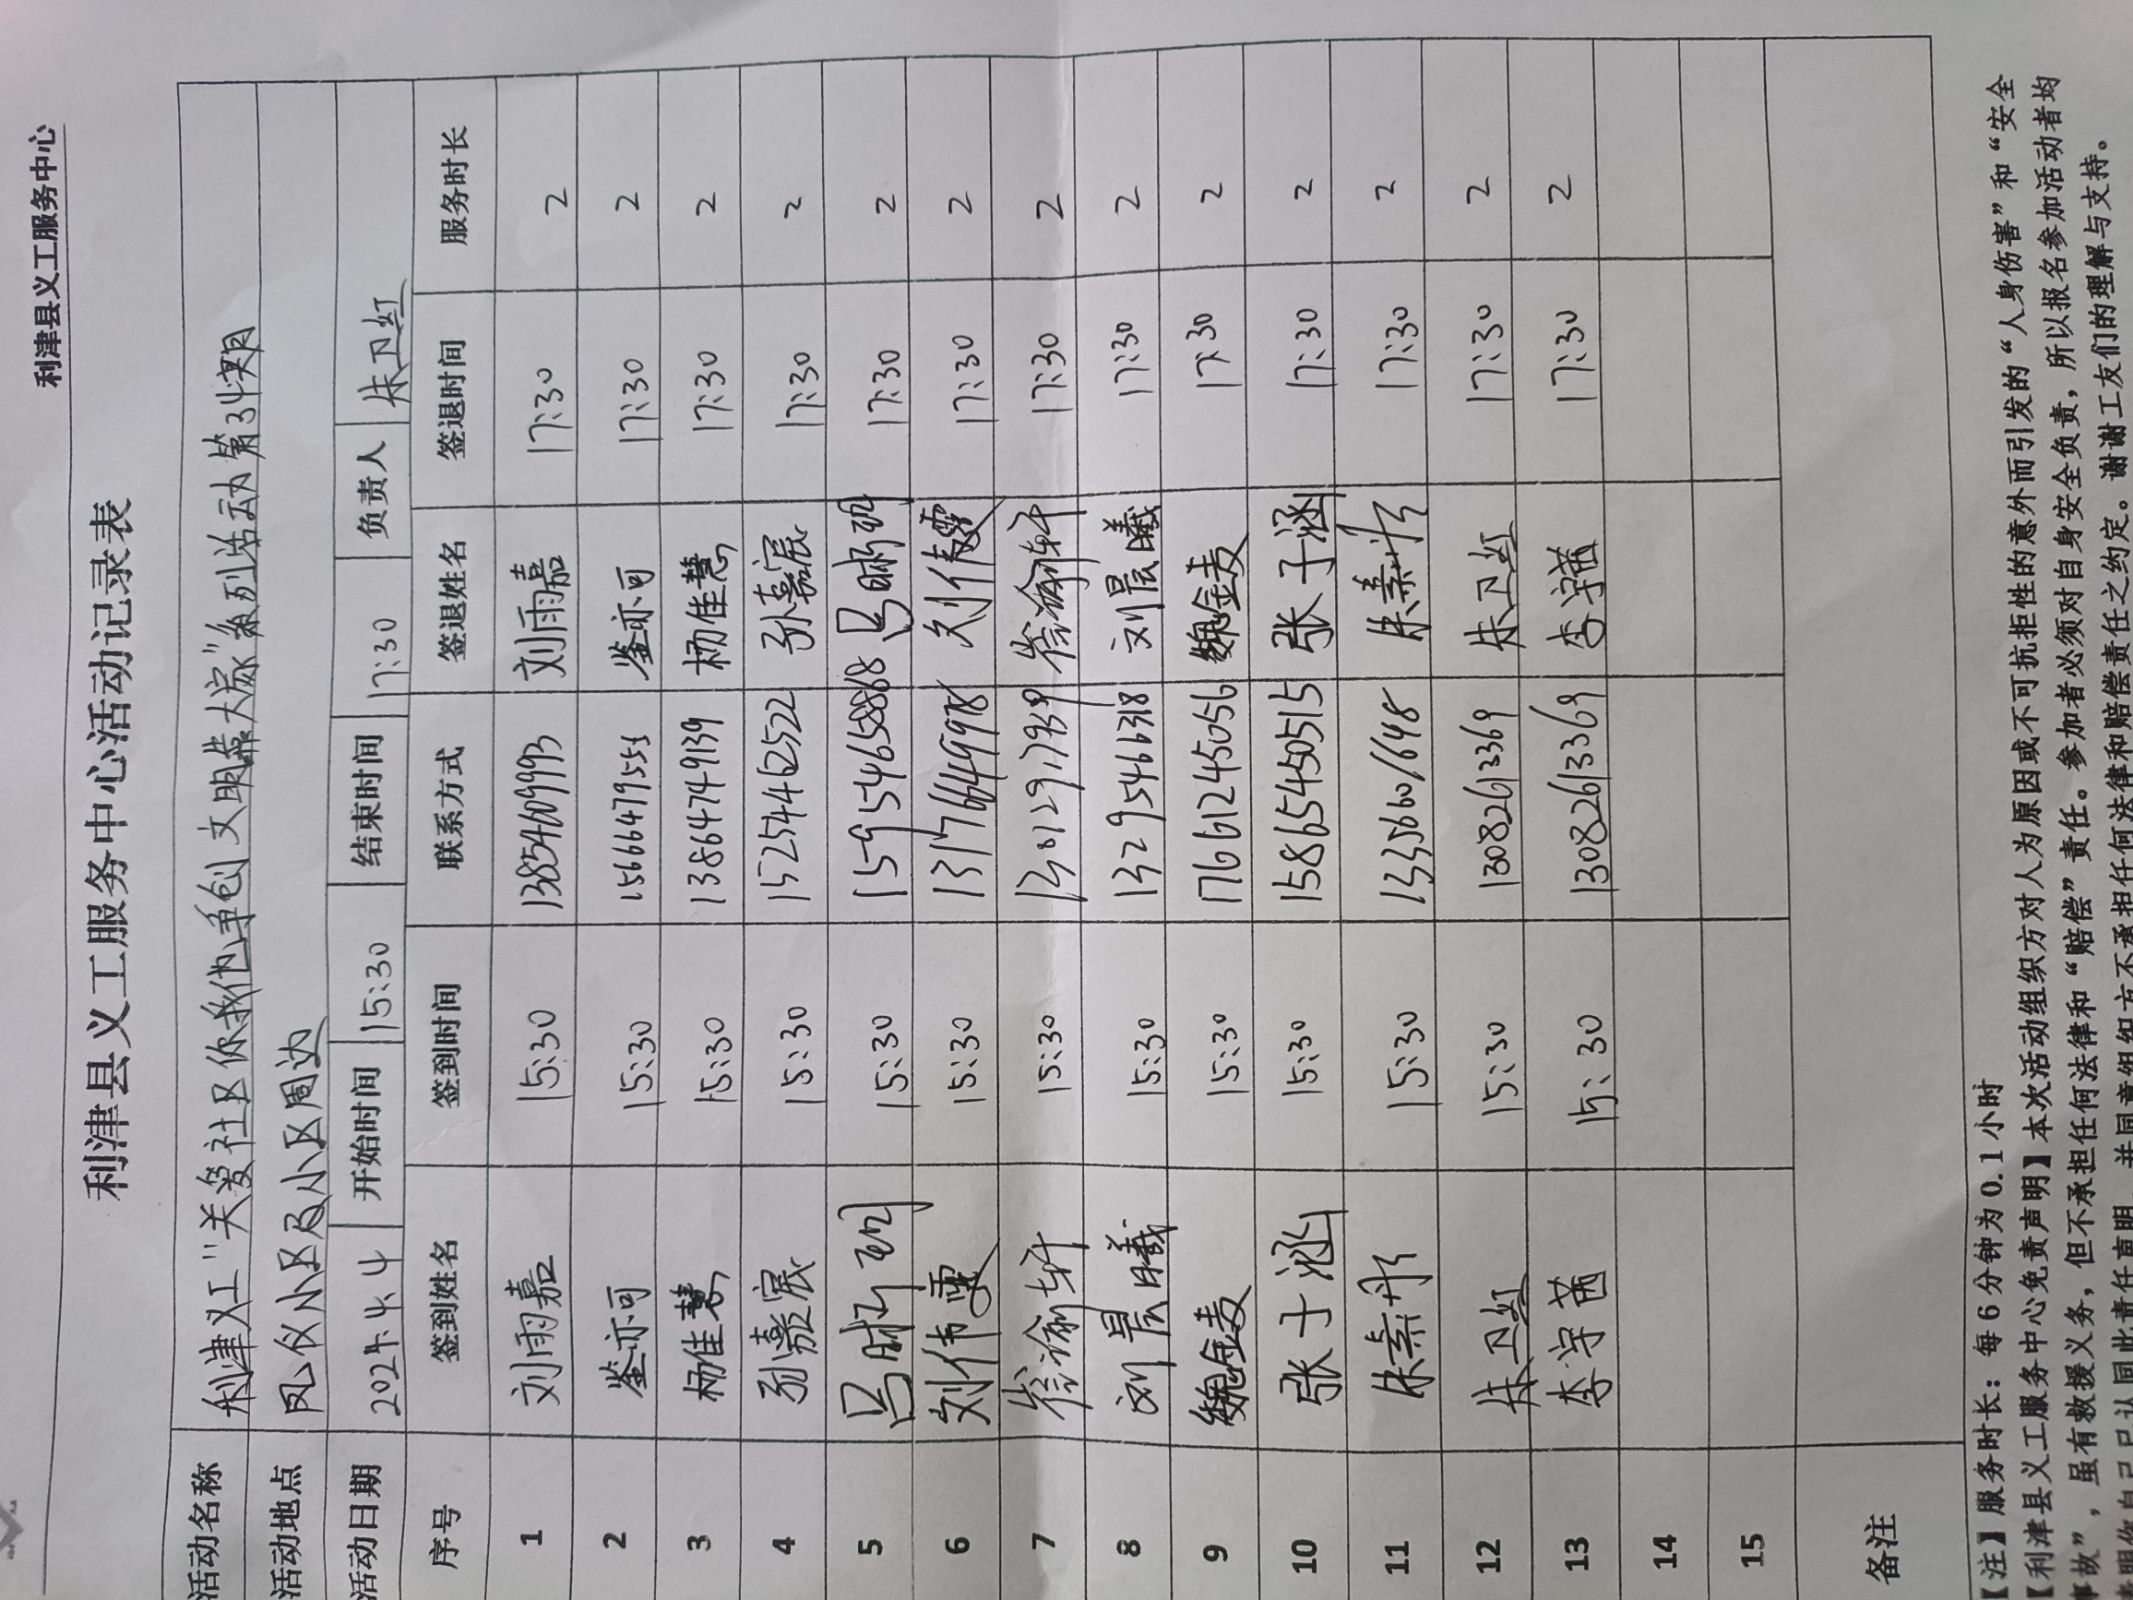 利津县义工服务中心
利津县义工服务中心活动记录表
活动名称 利津义工"关爱社区你我他,争创文明靠大家"系列活动第34期
活动地点 凤仪小区及小区周边
活动日期 2024.4.4 开始时间 15:30 结束时间 17:30 负责人 朱卫红
序号 签到姓名 签到时间 联系方式 签退姓名 签退时间 服务时长
1 刘雨嘉 15:30 13854609993 刘雨嘉 17:30 2
2 綦亦可 15:30 15666479555 綦亦可 17:30 2
3 杨佳慧 15:30 13864749139 杨佳慧 17:30 2
4 孙嘉宸 15:30 15254462522 孙嘉宸 17:30 2
5 15:30 17:30 2
6 刘伟雯 15:30 13176649978 刘伟雯 17:30 2
7 15:30 17:30 2
8 刘晨曦 15:30 刘晨曦 17:30 2
9 魏金麦 15:30 17661245056 魏金麦 17:30 2
10 张子涵 15:30 15865450515 张子涵 17:30 2
11 朱素彤 15:30 13356601648 朱素彤 17:30 2
12 朱卫红 15:30 13082613369 朱卫红 17:30 2
13 李宇茜 15:30 13082613369 李宇茜 17:30 2
14
15
备注
【注】服务时长:每6分钟为0.1小时
【利津县义工服务中心免责声明】本次活动组织方对人为原因或不可抗拒性的意外而引发的“人身伤害”和“安全
事故”,虽有救援义务,但不承担任何法律和“赔偿”责任。参加者必须对自身安全负责,所以报名参加活动者均
表明你自己已认同此责任声明,并同意组织方不承担任何法律和赔偿责任之约定。谢谢工友们的理解与支持。